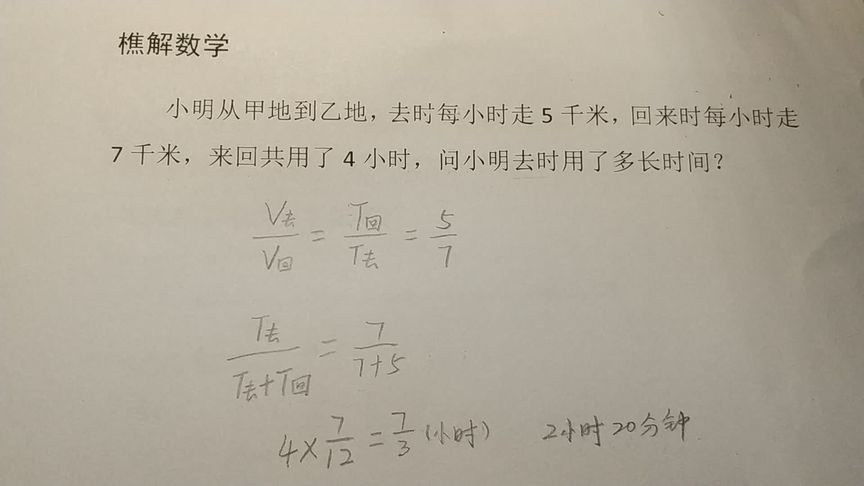 樵解数学
小明从甲地到乙地，去时每小时走 5 千米，回来时每小时走
7 千米，来回共用了 4 小时，问小明去时用了多长时间？
V去/V回 = T回/T去 = 5/7
T去/(T去+T回) = 7/(7+5)
4×7/12=7/3(小时) 2小时20分钟